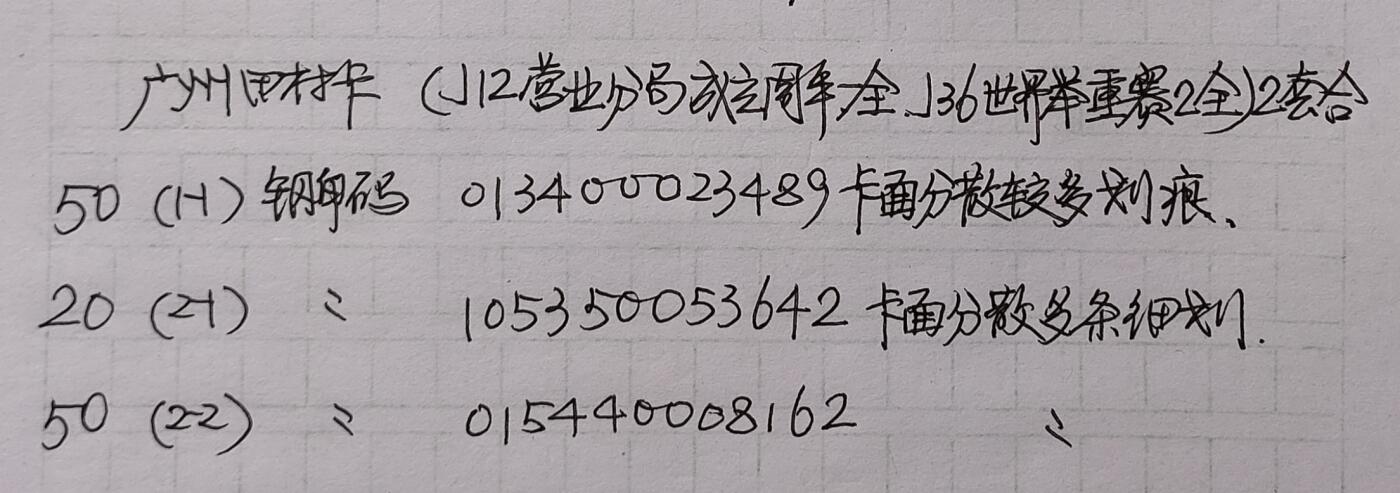 广州田村卡（J12营业分局成立周年1全、J36世界举重赛2全)2套合
50 (1-1) 钢印码 013400023489 卡面分散较多划痕、
20 (2-1) 〃 105350053642 卡面分散多条细划.
50 (2-2) 〃 015440008162 〃